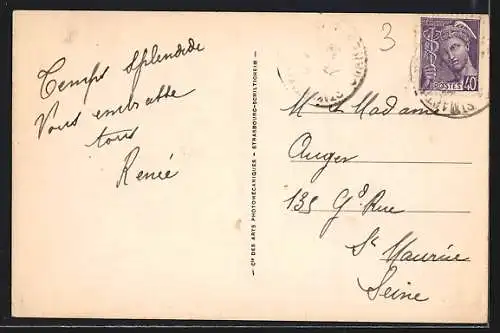 Temps splendide
Vous embrasse
tous
Renée
Cie DES ARTS PHOTOMÉCANIQUES - STRASBOURG-SCHILTIGHEIM
3
POSTES 40
M. Madame
Auger
135 Gde Rue
St Maurice
Seine